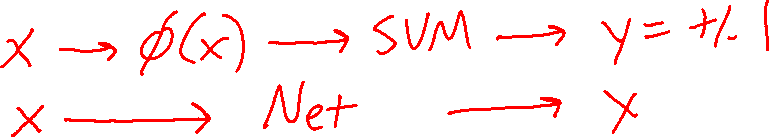 x → φ(x) → SVM → y = +/. 1
x → Net → x